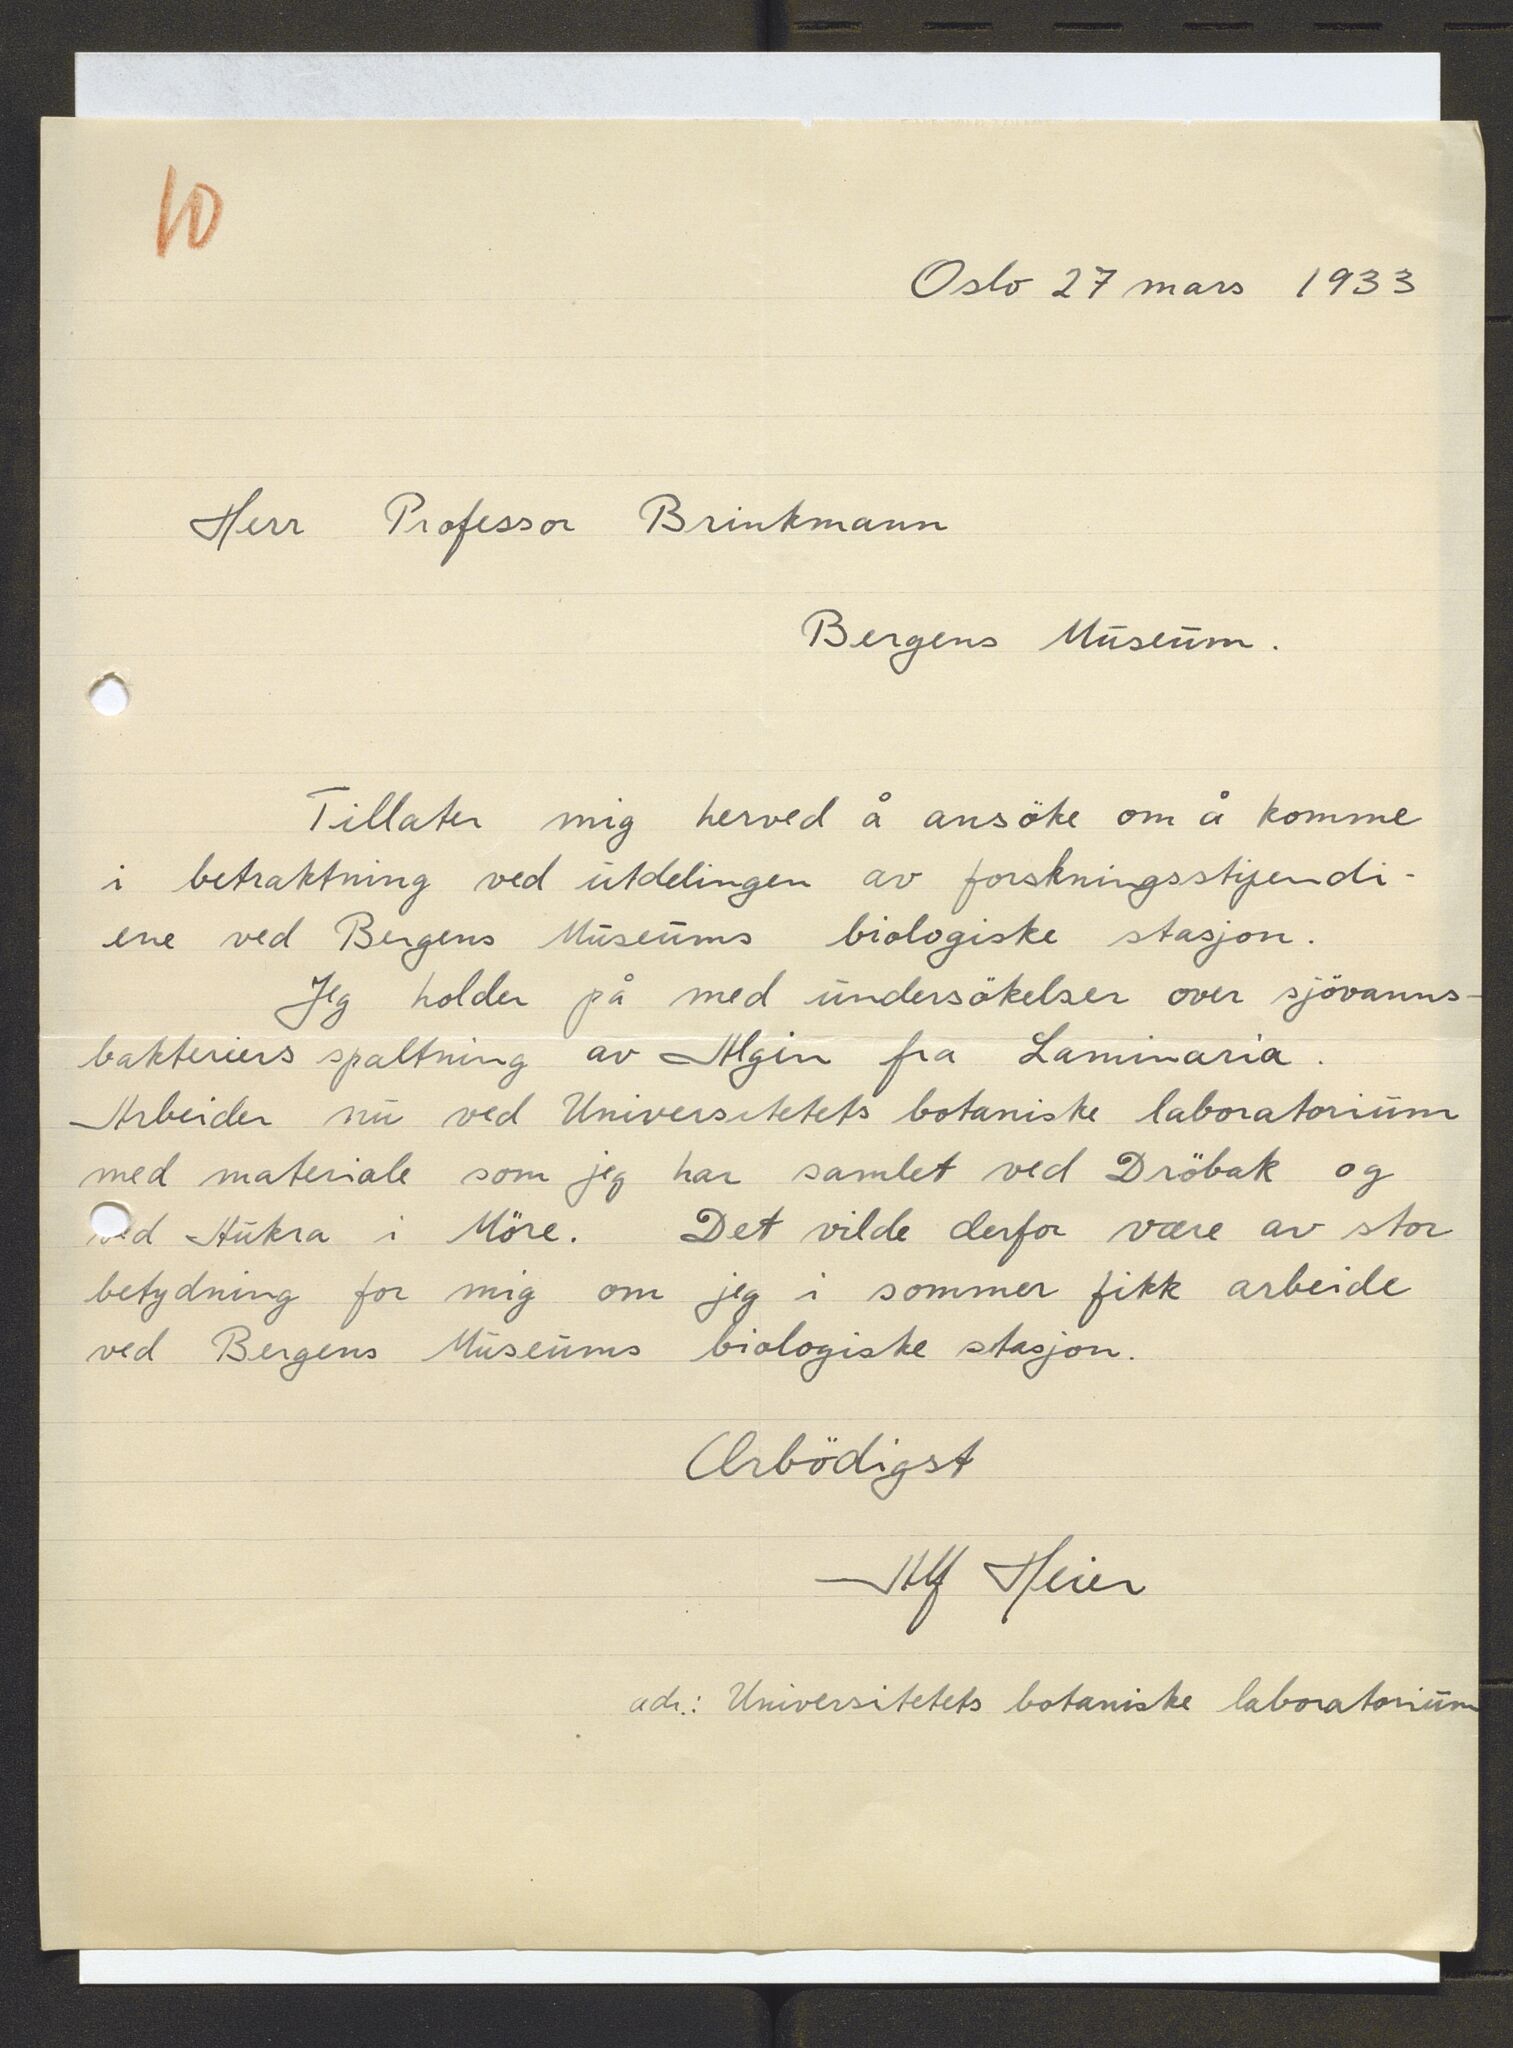 10
Oslo 27 mars 1933
Herr Professor Brinkmann
Bergens Museum.
Tillater mig herved å ansöke om å komme
i betraktning ved utdelingen av forskningsstipendi-
ene ved Bergens Museums biologiske stasjon.
Jeg holder på med undersökelser over sjövanns-
bakteriers spaltning av Algin fra Laminaria.
Arbeider nu ved Universitetets botaniske laboratorium
med materiale som jeg har samlet ved Dröbak og
ved Aukra i Möre. Det vilde derfor være av stor
betydning for mig om jeg i sommer fikk arbeide
ved Bergens Museums biologiske stasjon.
Ærbödigst
Alf Heier
adr.: Universitetets botaniske laboratorium